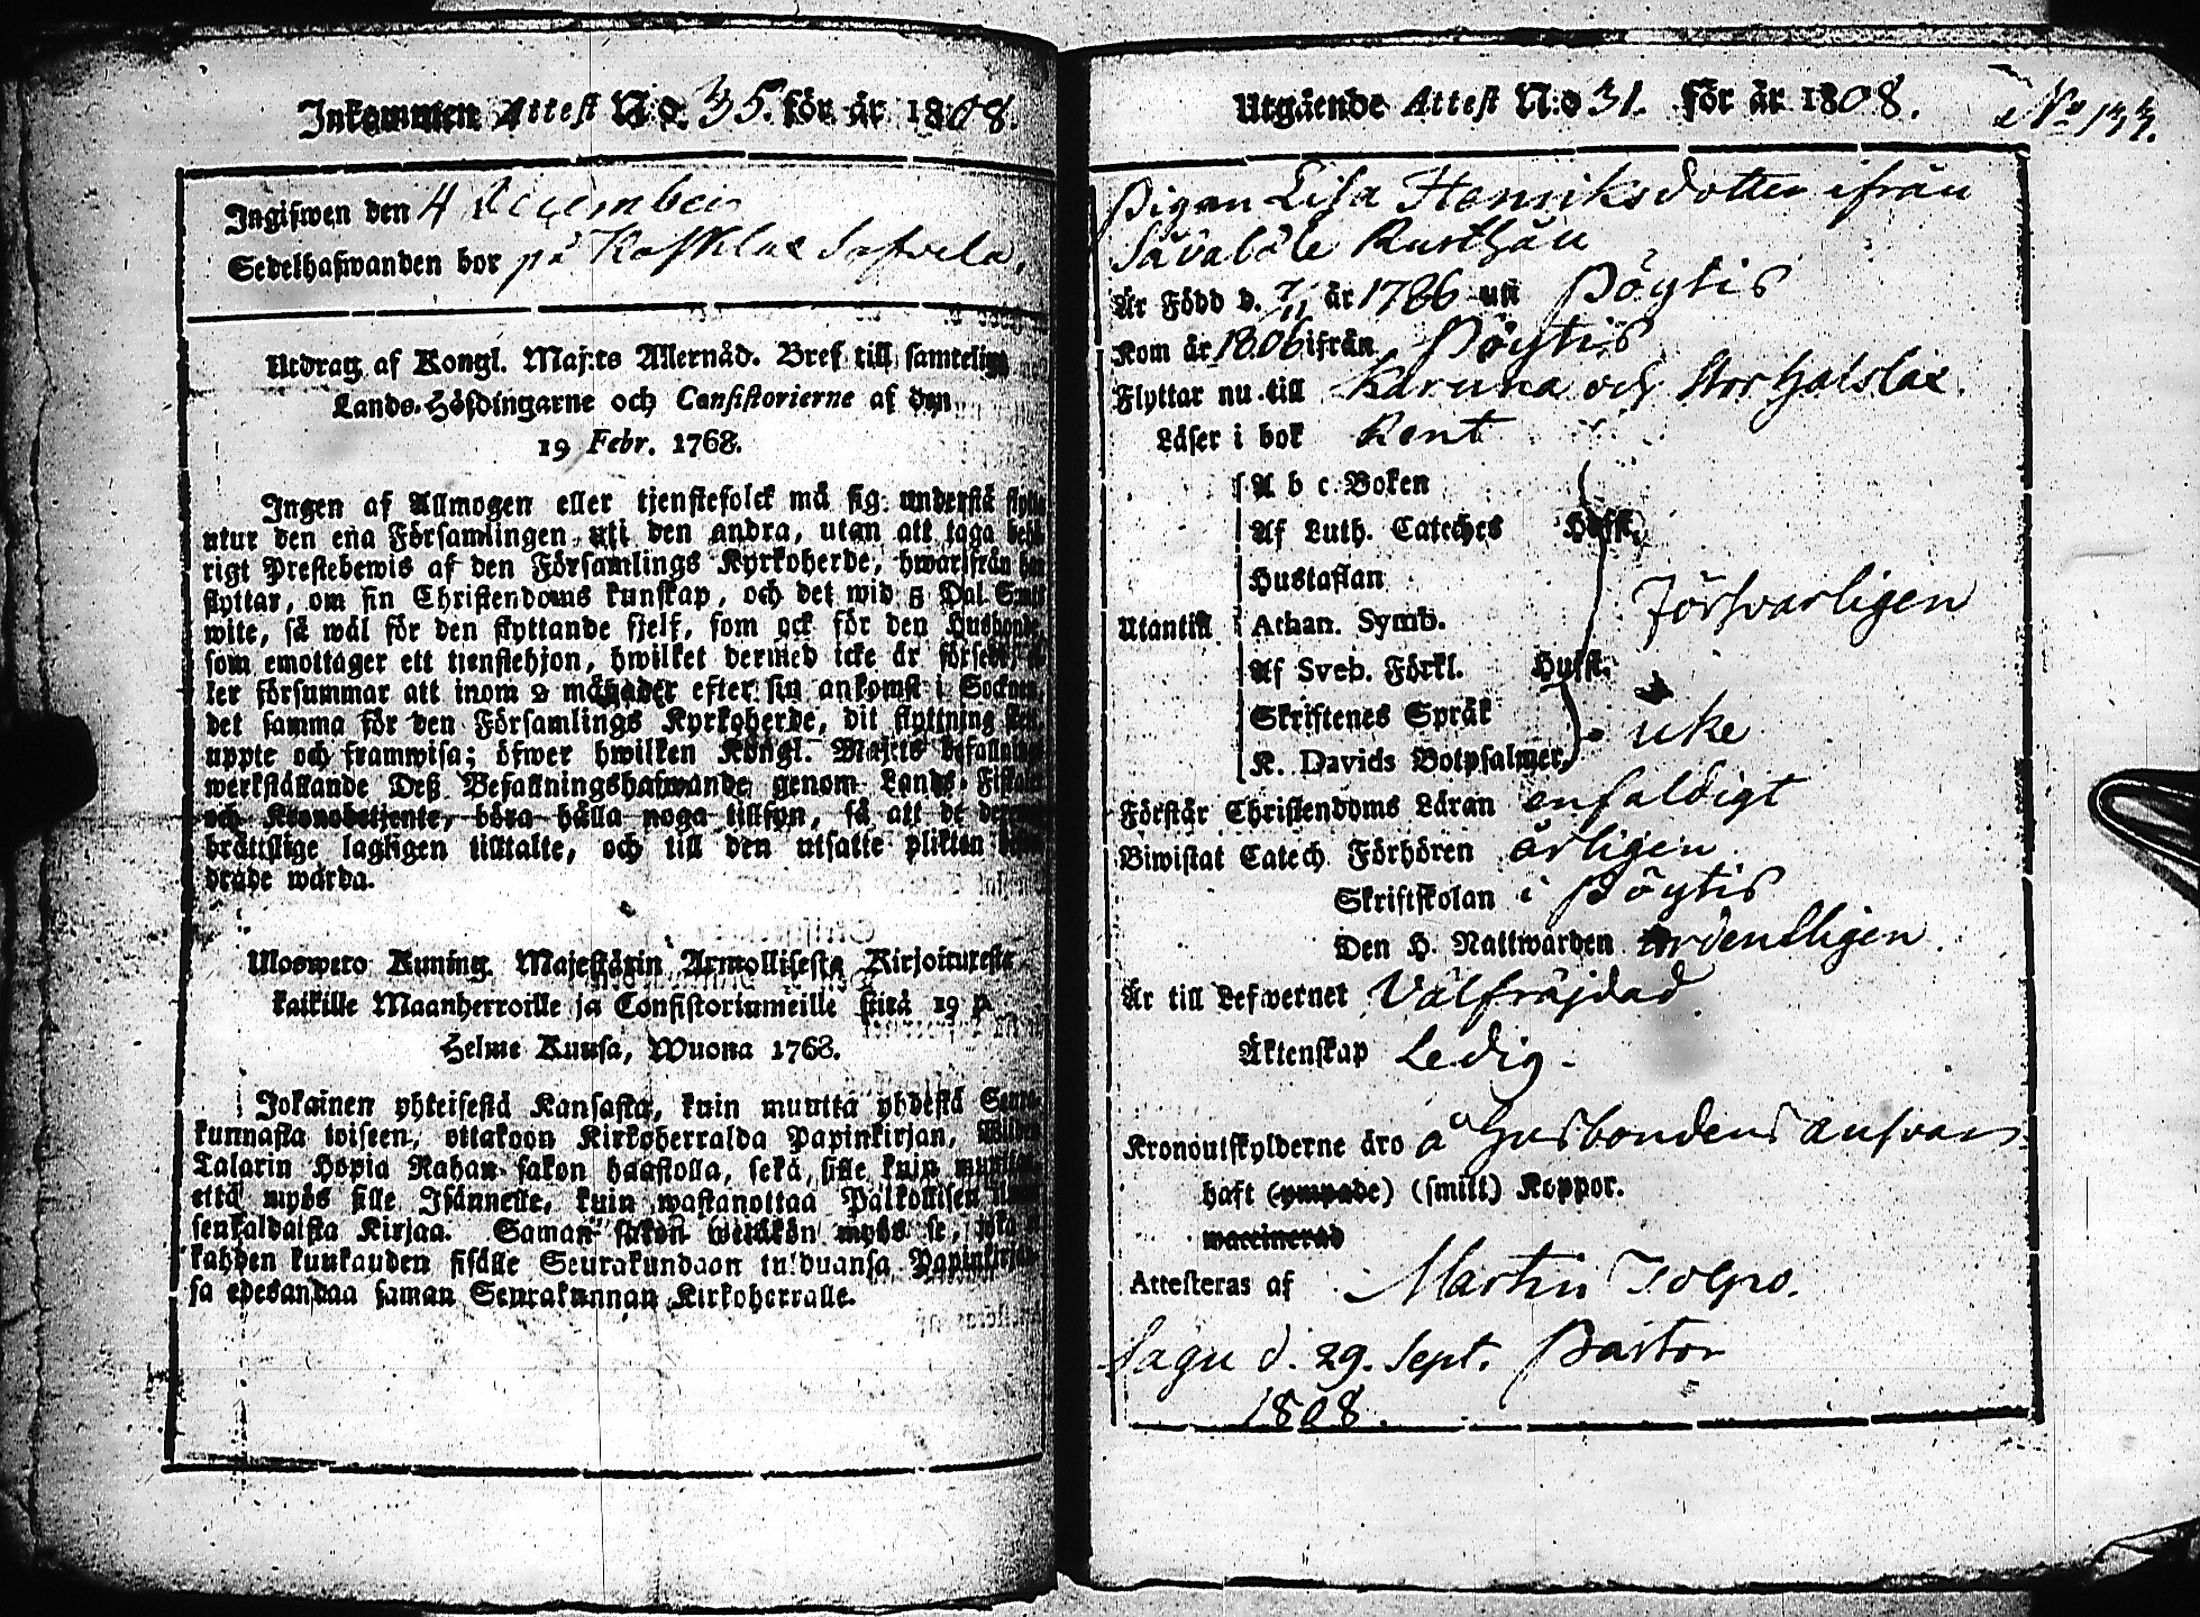 Inkommen Attest N:o 35. för år 1808.
Ingifwen den 4 December
Sedelhafwanden bor på Kasklax Safvela.
Utdrag af Kongl. Maj:ts Allernåd. Bref till samtelige
Lands-Höfdingarne och Consistorierne af den
19 Febr. 1768.
Ingen af Allmogen eller tjenstefolck må sig understå flytta
utur den ena Församlingen uti den andra, utan att taga behö-
rigt Prestebewis af den Församlings Kyrkoherde, hwarifrån han
flyttar, om sin Christendoms kunskap, och det wid 5 Dal. Smts
wite, så wäl för den flyttande sjelf, som ock för den Husbonde,
som emottager ett tienstehjon, hwilket dermed icke är försedt, el-
ler försummar att inom 2 månader efter sin ankomst i Socknen,
det samma för den Församlings Kyrkoherde, dit flyttning sker,
uppte och framwisa; öfwer hwilken Kongl. Maj:ts befallning
werkställande Deß Befallningshafwande genom Lands-Fiskaler
och Kronobetjente, böra hålla noga tillsyn, så att de
brättslige lagligen tilltalte, och till den utsatte plikten
drade warda.
Uloswето Kuning. Majestätin Armollisesta Kirjoituresta
kaikille Maanherroille ja Consistoriumeille siitä 19 p.
Helme Kuusa, Wuona 1768.
Jokainen yhteisestä Kansasta, kuin muutta yhdestä Seura-
kunnasta toiseen, ottakoon Kirkoherralda Papinkirjan, Wiiden
Talarin Hopia Rahan sakon haastolla, sekä sille kuin muutta
että myös sille Isännelle, kuin wastanottaa Palkollisen
senkaldaista Kirjaa. Saman sakon wetäkön myös se, joka ei
kahden kuukauden sisälle Seurakundaan tulduansa Papinkirjan-
sa edesandaa saman Seurakunnan Kirkoherralle.
Utgående Attest N:o 31. för år 1808.
No 133.
Pigan Lisa Henriksdotter ifrån
Sävaböle Rusthåll
Är Född d. 7/11 år 1786 uti Pöytis
Kom år 1806 ifrån Pöytis
Flyttar nu till Karuna och Storhalslax.
Läser i bok Rent
A b c Boken
Af Luth. Cateches Hufst.
Hustaflan
Utantill Athan. Symb. Försvarligen
Af Sveb. Förkl. Hufst.
Skriftenes Språk
icke
K. Davids Botpsalmer
Förstår Christendoms Läran enfaldigt
Biwistat Catech. Förhören årligen.
Skriftskolan i Pöytis
Den H. Nattwarden Ordentligen.
Är till Lefwernet Välfräjdad
Äktenskap Ledig.
Kronoutskylderne äro å Husbondens ansvar
haft (ympade) (smitt) Koppor.
waccinerad
Attesteras af Martin Tolpo.
Sagu d. 29. Sept. Pastor
1808.